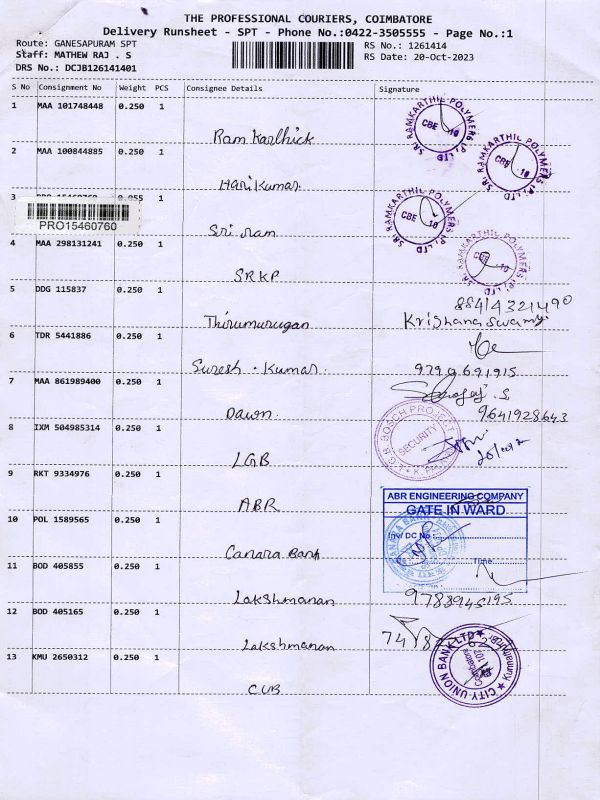 THE PROFESSIONAL COURIERS, COIMBATORE
Delivery Runsheet - SPT - Phone No.:0422-3505555 - Page No.:1
Route: GANESAPURAM SPT
RS No.: 1261414
Staff: MATHEW RAJ . S
RS Date: 20-Oct-2023
DRS No.: DCJB126141401
S No Consignment No Weight PCS Consignee Details Signature
1 MAA 101748448 0.250 1
Ram Karthick
SRI RAMKARTHIC POLYMERS (P) LTD CBE 18
2 MAA 100844885 0.250 1
Hari Kumar
SRI RAMKARTHIC POLYMERS (P) LTD CBE 18
3 1
PRO15460760
Sri.ram
SRI RAMKARTHIC POLYMERS (P) LTD CBE 18
4 MAA 298131241 0.250 1
SRKP
SRI RAMKARTHIC POLYMERS (P) LTD CBE 18
5 DDG 115837 0.250 1
Thirumurugan
Krishana Swamy
6 TDR 5441886 0.250 1
Suresh . Kumar
9799691915
7 MAA 861989400 0.250 1
Dawn
9641928643
8 IXM 504985314 0.250 1
LGB
BOSCH PROJECT
SECURITY
9 RKT 9334976 0.250 1
ABR
ABR ENGINEERING COMPANY
GATE IN WARD
Inv/ DC No
Time
10 POL 1589565 0.250 1
Canara Bank
CANARA BANK
11 BOD 405855 0.250 1
Lakshmanan
9788945195
12 BOD 405165 0.250 1
Lakshmanan
13 KMU 2650312 0.250 1
CUB
CITY UNION BANK LTD
Coimbatore